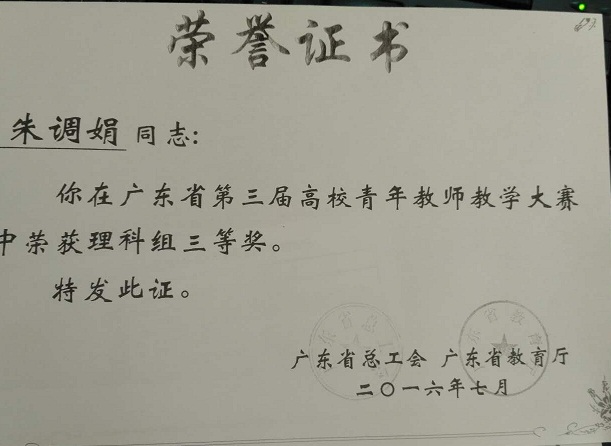 荣誉证书
朱调娟 同志:
你在广东省第三届高校青年教师教学大赛
中荣获理科组三等奖。
特发此证。
广东省总工会 广东省教育厅
二〇一六年七月